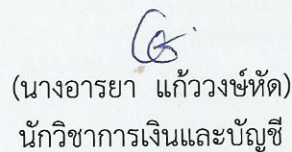 (นางอารยา แก้ววงษ์หัด)
นักวิชาการเงินและบัญชี